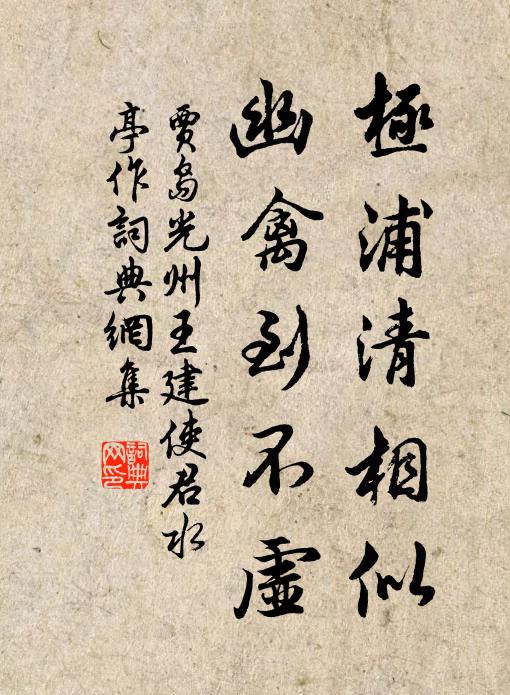 極浦清相似
幽禽到不虛
賈島光州王建使君水
亭作詞典網集
詞典网印